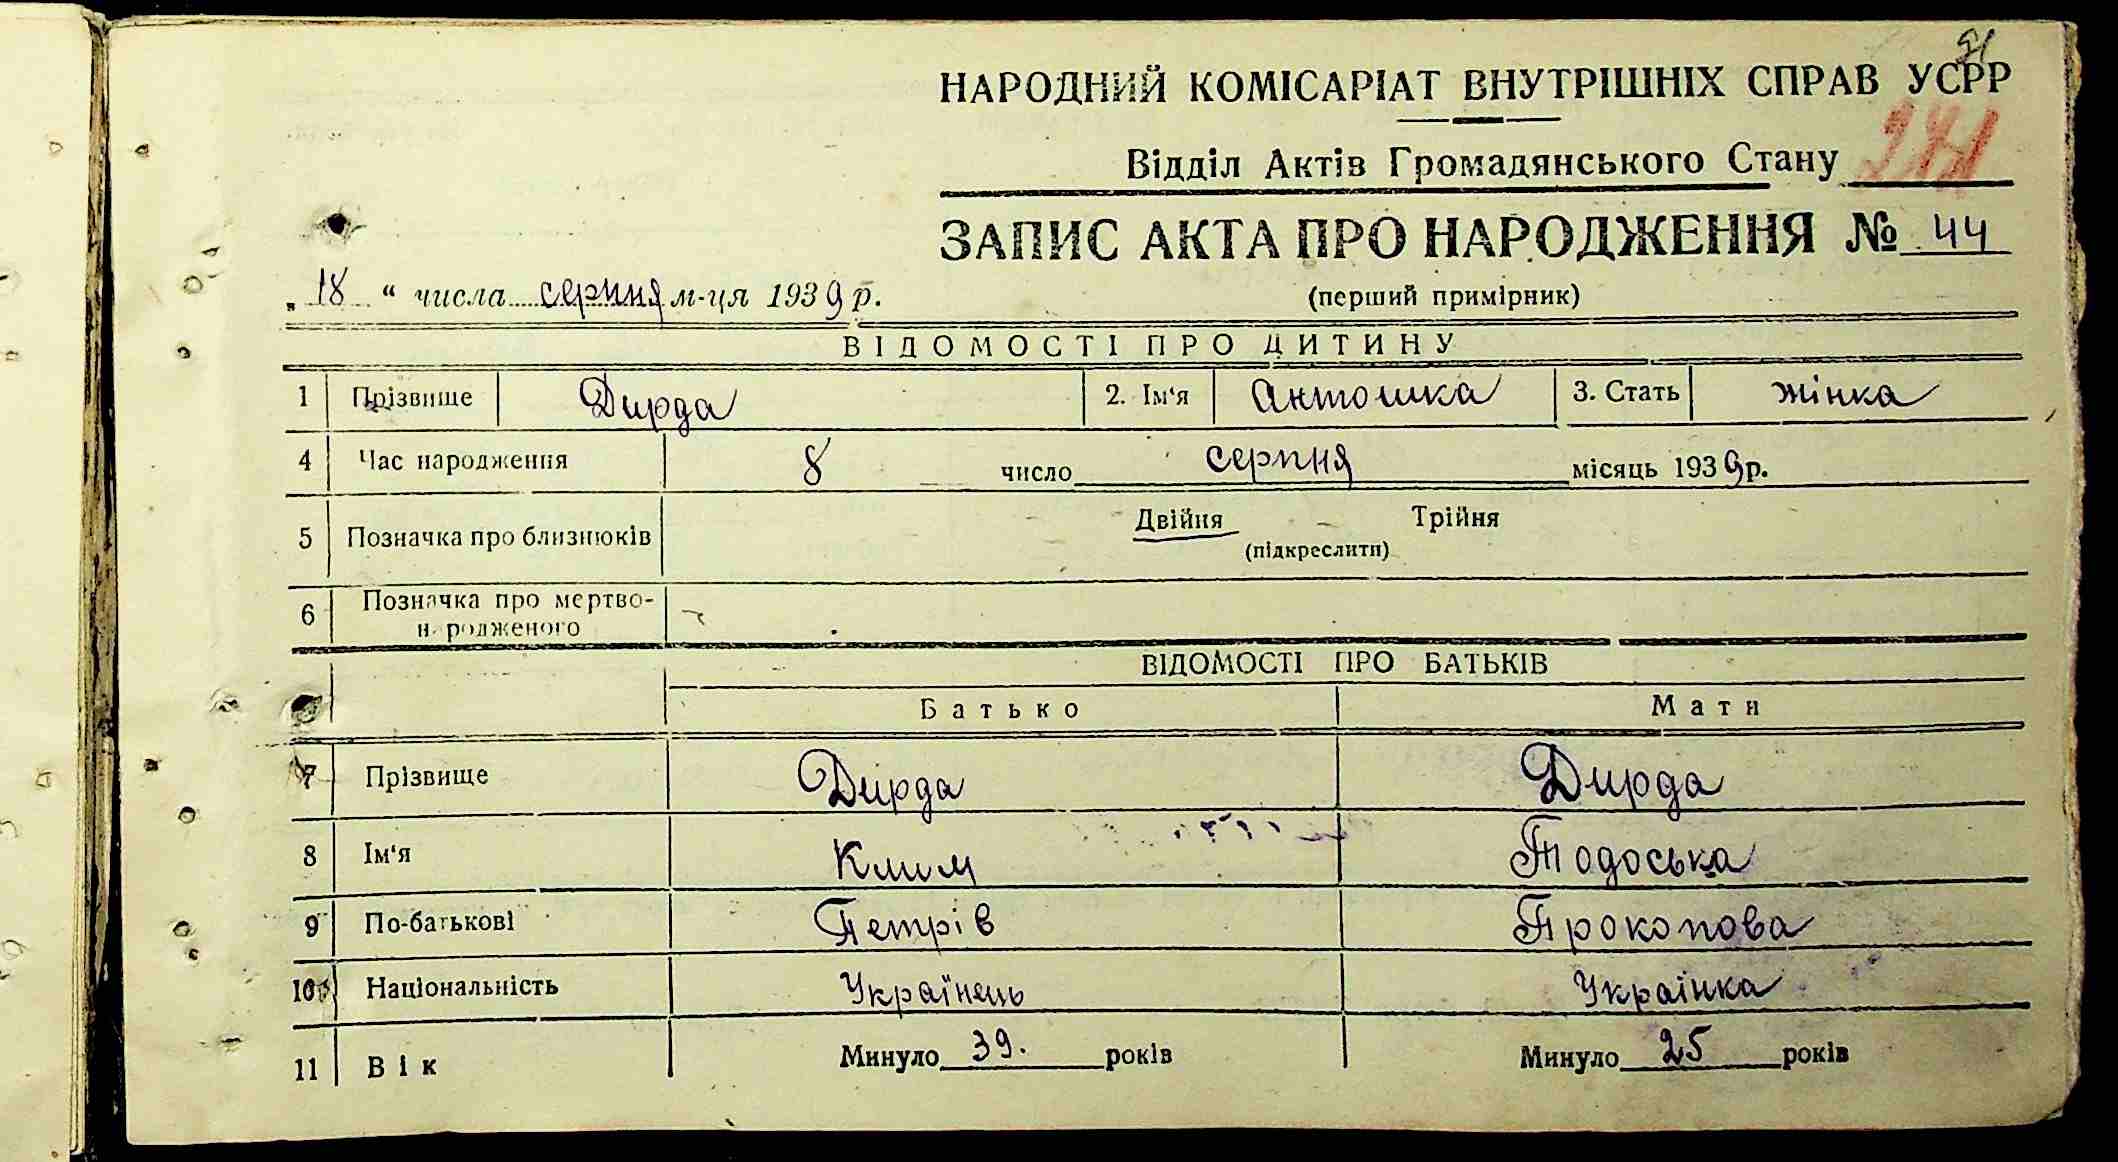 НАРОДНИЙ КОМІСАРІАТ ВНУТРІШНІХ СПРАВ УСРР
Відділ Актів Громадянського Стану
ЗАПИС АКТА ПРО НАРОДЖЕННЯ № 44
„ 18 “ числа серпня м-ця 1939 р.
(перший примірник)
ВІДОМОСТІ ПРО ДИТИНУ
1 Прізвище Дирда 2. Ім‘я Антошка 3. Стать жінка
4 Час народження 8 число серпня місяць 1939 р.
5 Позначка про близнюків Двійня Трійня
(підкреслити)
6 Позначка про мертво-
н родженого
ВІДОМОСТІ ПРО БАТЬКІВ
Батько Мати
7 Прізвище Дирда Дирда
8 Ім‘я Клим Тодоська
9 По-батькові Петрів Прокопова
10 Національність Українець Украінка
11 Вік Минуло 39. років Минуло 25 років